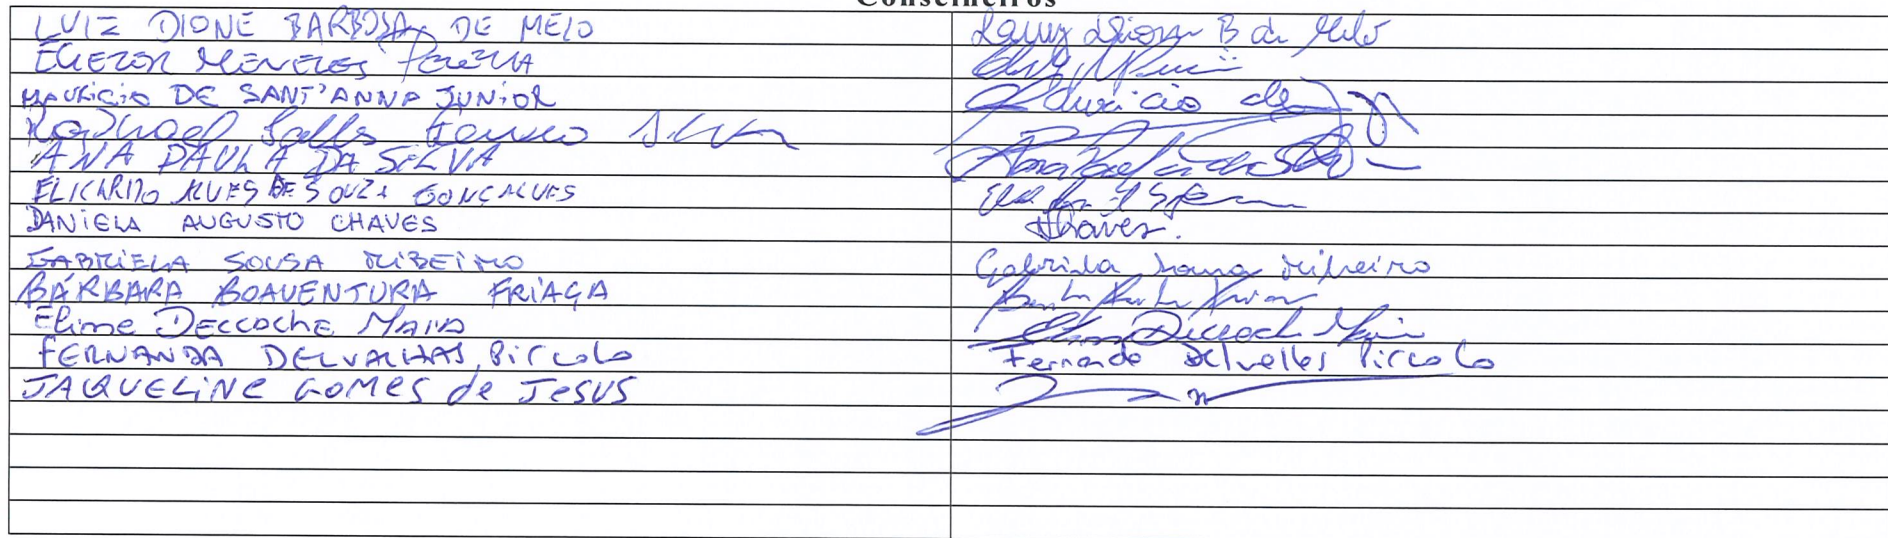 Conselheiros
LUIZ DIONE BARBOSA DE MELO
Luiz Dione B de Melo
ELIEZER MENEZES PEREIRA
MAURICIO DE SANT'ANNA JUNIOR
Mauricio de
Raphael Salles
ANA PAULA DA SILVA
Ana Paula da Silva
ELICARDO ALVES DE SOUZA GONÇALVES
DANIELA AUGUSTO CHAVES
Chaves.
GABRIELA SOUSA RIBEIRO
Gabriela Sousa Ribeiro
BÁRBARA BOAVENTURA FRIAÇA
Eline DECCACHE MAIA
Eline Deccach Maia
FERNANDA DELVALHAS PICCOLO
Fernanda Delvalhas Piccolo
JAQUELINE GOMES de JESUS